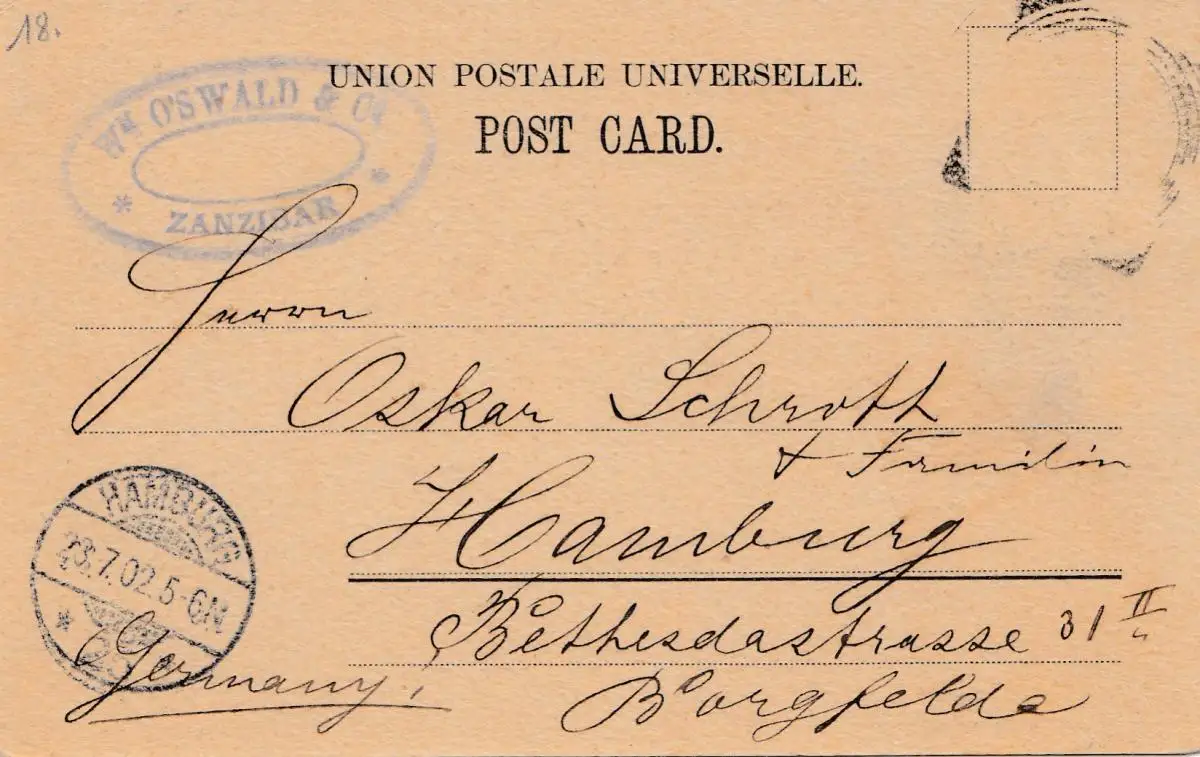 18.
UNION POSTALE UNIVERSELLE.
POST CARD.
Wm O'SWALD & Co
* ZANZIBAR *
Herrn
Oskar Schrott
+ Familie
Hamburg
Bethesdastrasse 31 II
Borgfelde
HAMBURG
23.7.02.5-6N
* 2
Germany.